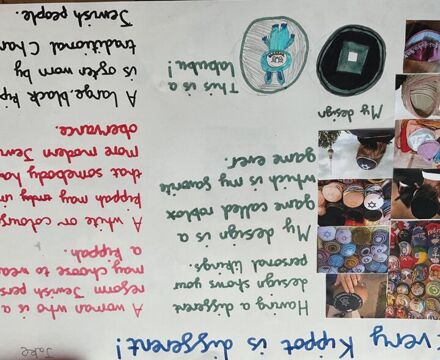 Every Kippot is different!
Jake
Having a different
design shows your
personal liking.
My design is a
game called roblox
which is my favorite
game ever.
My design
This is a
labubu!
A woman who is a
reform Jewish pers
may choose to wea
a kippah.
A white or colour
kippah may imply
that somebody ha
more modern Jew
obervance.
A large, black kip
is often worn by
traditional Chare
Jewish people.